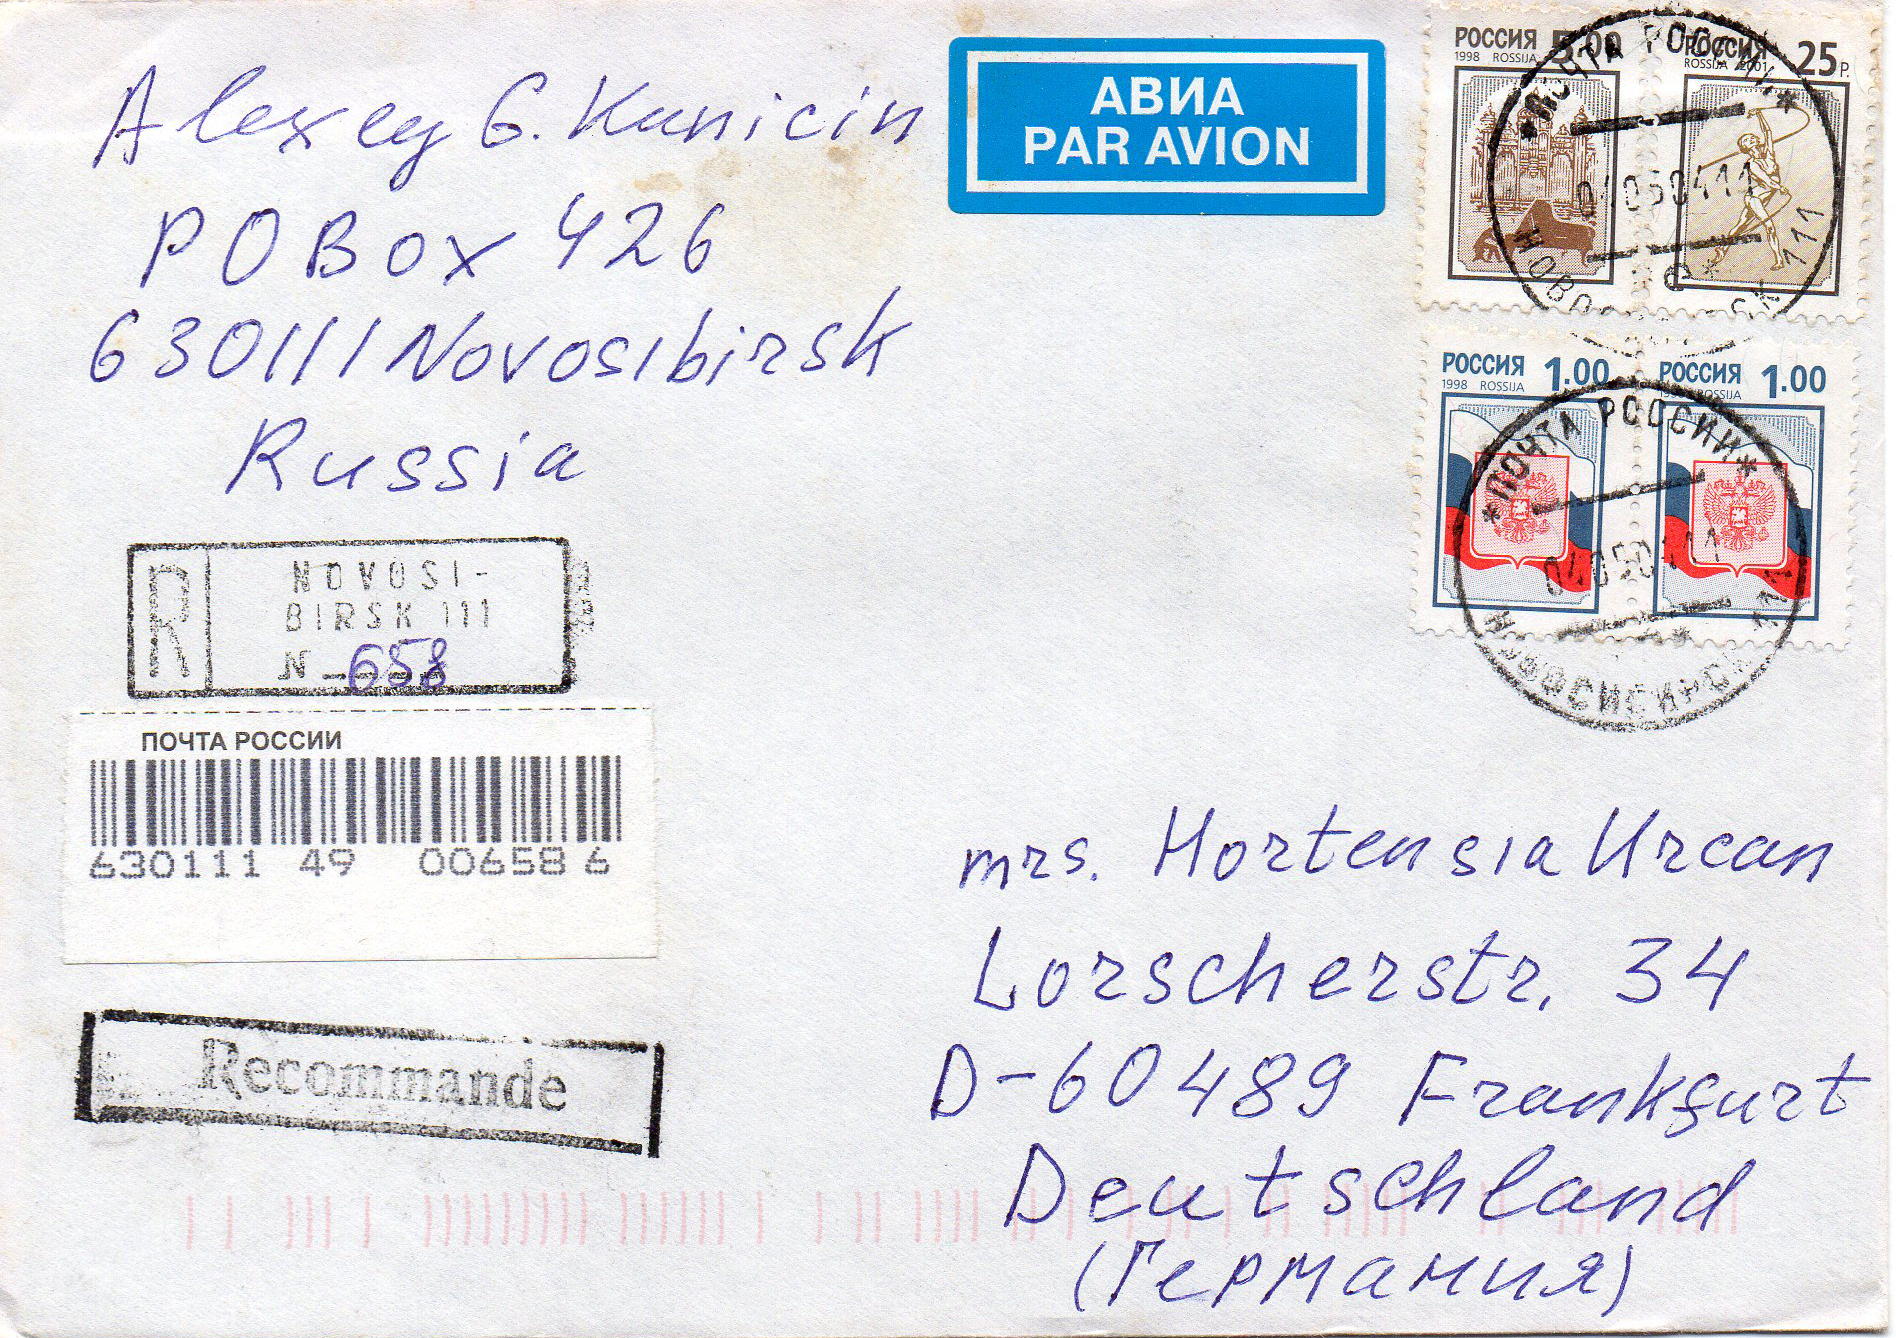 Alexey G. Kunicin
POBox 426
630111 Novosibirsk
Russia
АВИА
PAR AVION
РОССИЯ 5.00
1998 ROSSIJA
РОССИЯ 25 Р.
ROSSIJA 2001
ПОЧТА РОССИИ
111
РОССИЯ 1.00
1998 ROSSIJA
РОССИЯ 1.00
ROSSIJA
ПОЧТА РОССИИ
НОВОСИБИРСК 111
R
NOVOSI-
BIRSK 111
N 658
ПОЧТА РОССИИ
630111 49 00658 6
Recommande
mrs. Hortensia Urcan
Lorscherstr. 34
D-60489 Frankfurt
Deutschland
(Германия)